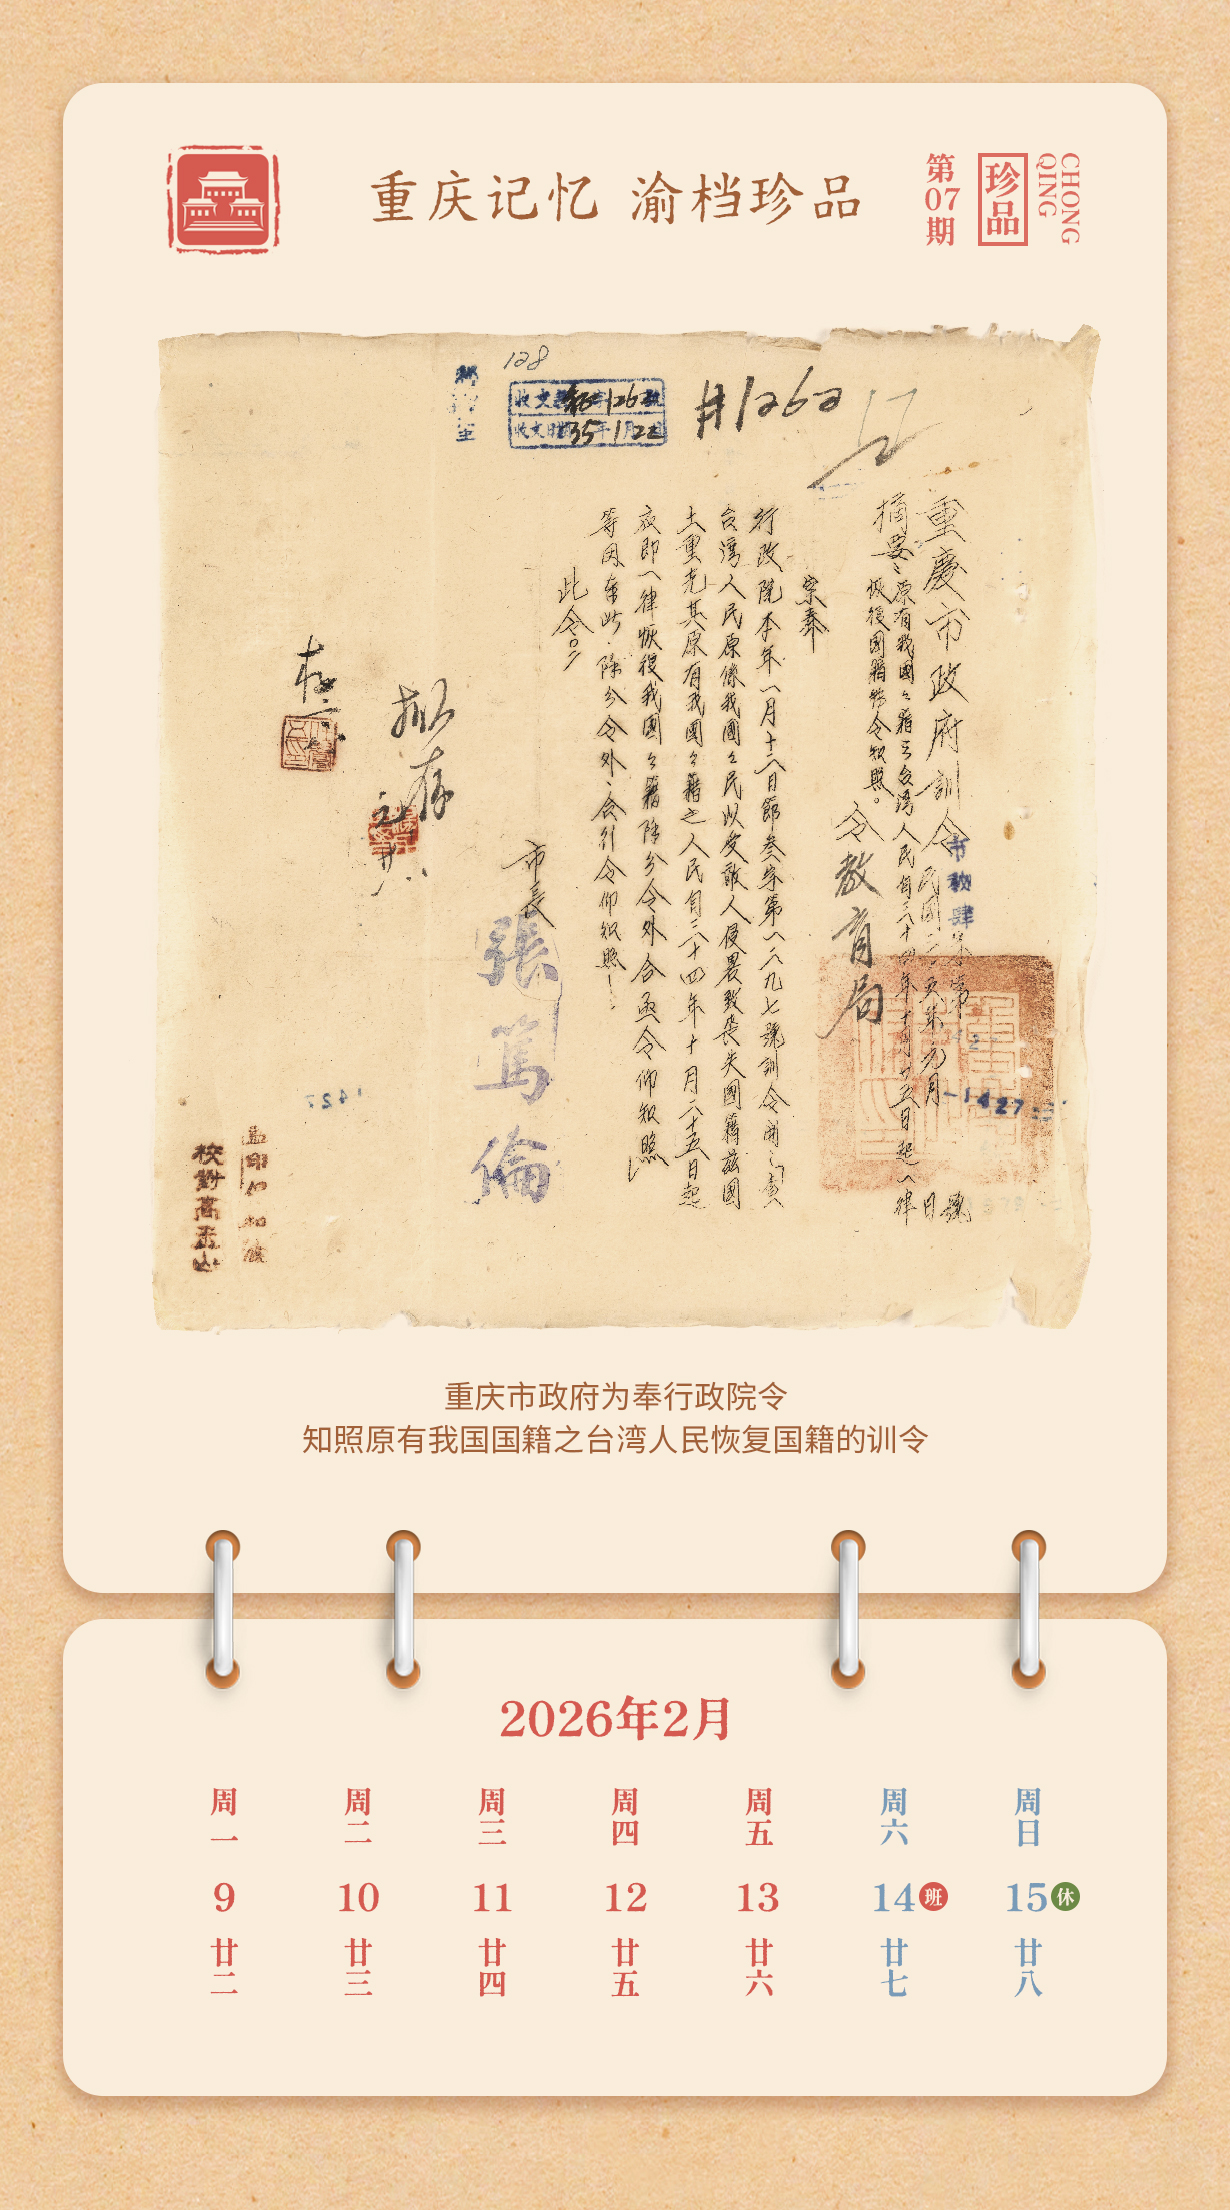 重庆记忆 渝档珍品
第07期
珍品
CHONG
QING
128
#1262
重慶市政府訓令
市秘肆字第
1427
號
摘要：原有我國之籍之台灣人民自三十四年十月廿五日起一律
恢復國籍特令知照。
令教育局
案奉
行政院本年一月十二日節叁字第一二九七號訓令開：查
台灣人民原係我國之民以受敵人侵略致喪失國籍茲國
土重光其原有我國之籍之人民自三十四年十月二十五日起
應即一律恢復我國之籍除分令外合函令仰知照
等因奉此，除分令外，合行令仰知照！
此令。
市長
張篤倫
擬存
校對高玉山
重庆市政府为奉行政院令
知照原有我国国籍之台湾人民恢复国籍的训令
2026年2月
周一 周二 周三 周四 周五 周六 周日
9 10 11 12 13 14 班 15 休
廿二 廿三 廿四 廿五 廿六 廿七 廿八